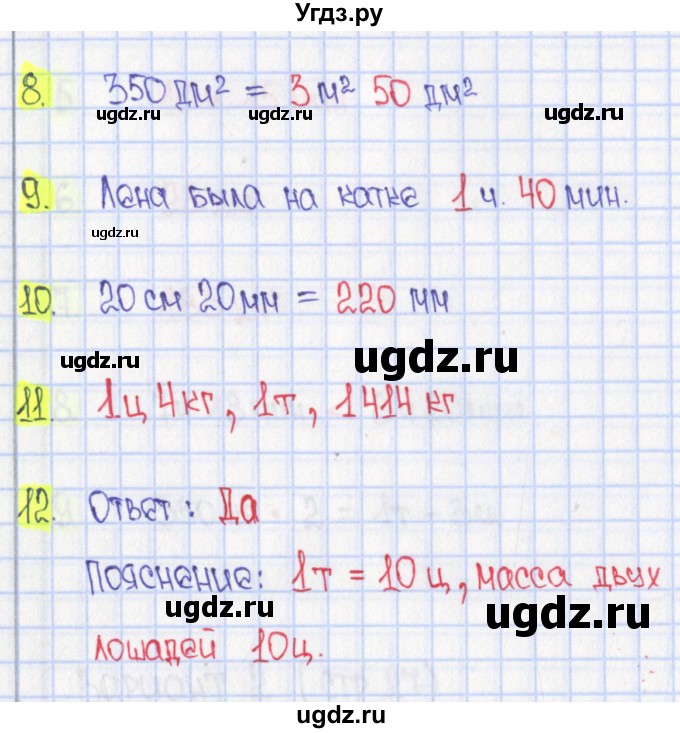 Угдз.ру
8. 350 дм² = 3 м² 50 дм²
ugdz.ru ugdz.ru ugdz.ru
9. Лена была на катке 1 ч. 40 мин.
ugdz.ru ugdz.ru
10. 20 см 20 мм = 220 мм
ugdz.ru ugdz.ru
11. 1ц 4кг, 1т, 1414 кг
ugdz.ru
12. Ответ: Да
ugdz.ru
Пояснение: 1т = 10 ц, масса двух
ugdz.ru ugdz.ru
лошадей 10ц.
ugdz.ru